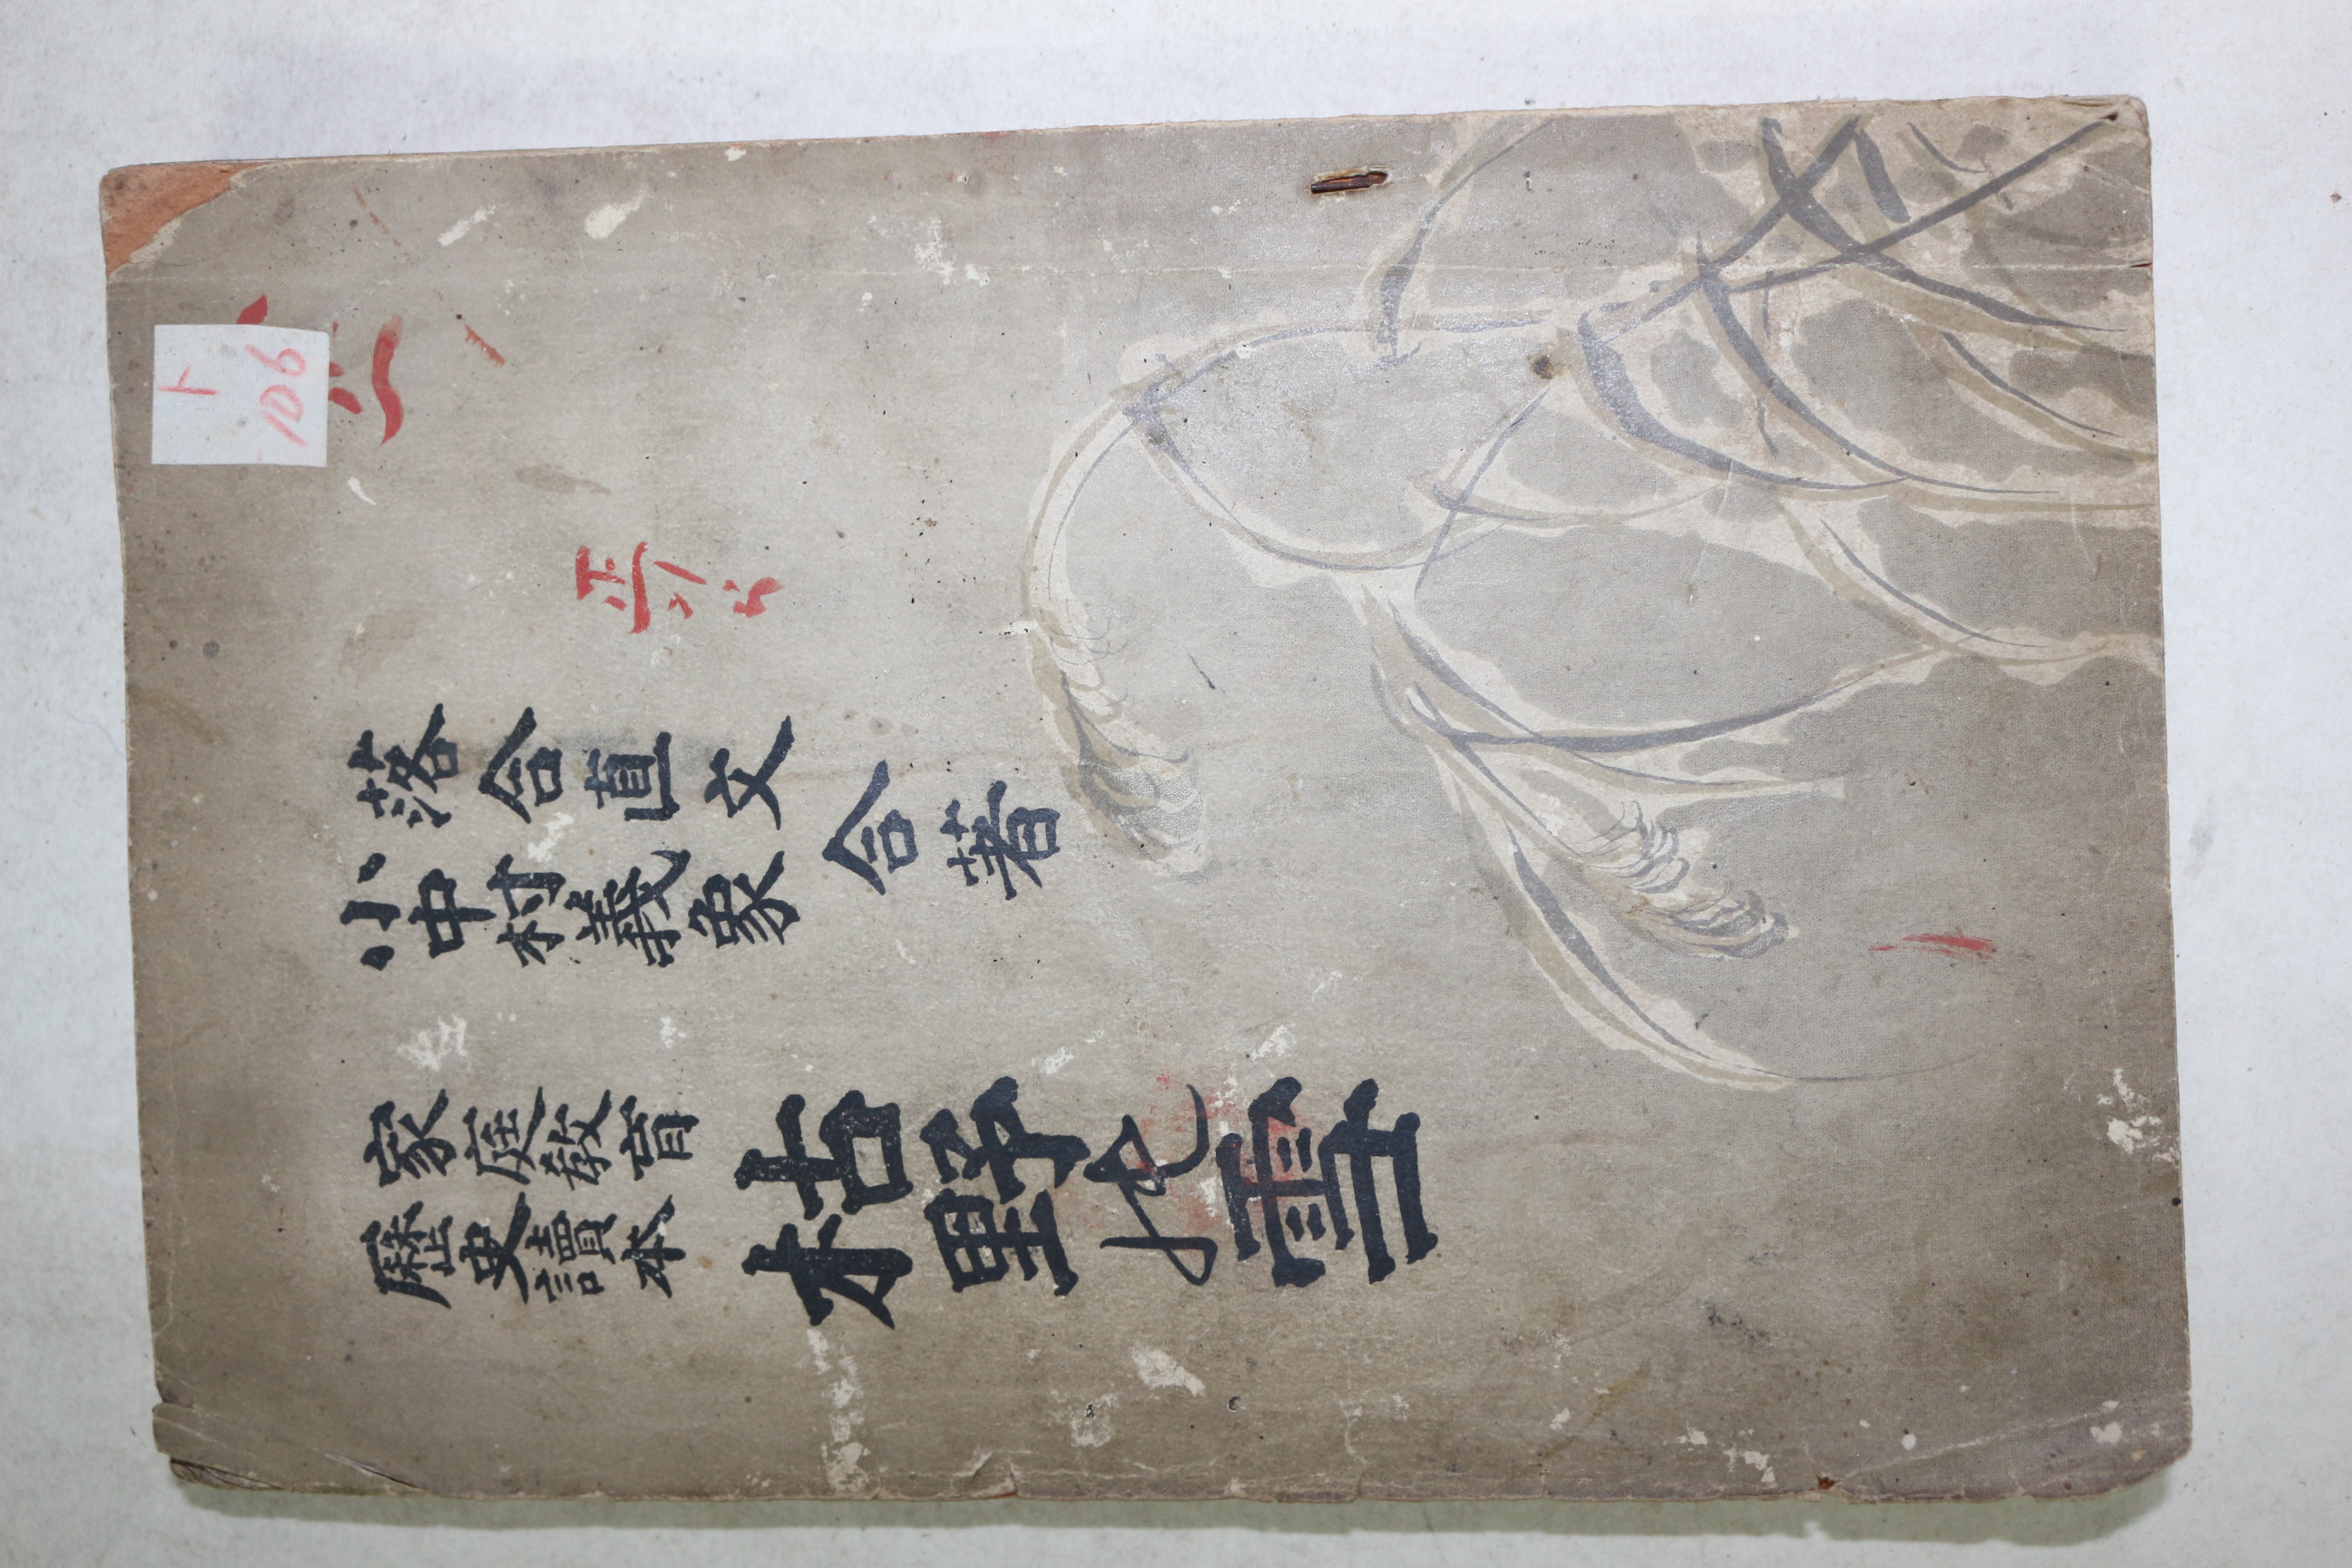 106
落合直文
小中村義象
合著
家庭教育
歷史讀本
枯野の雪